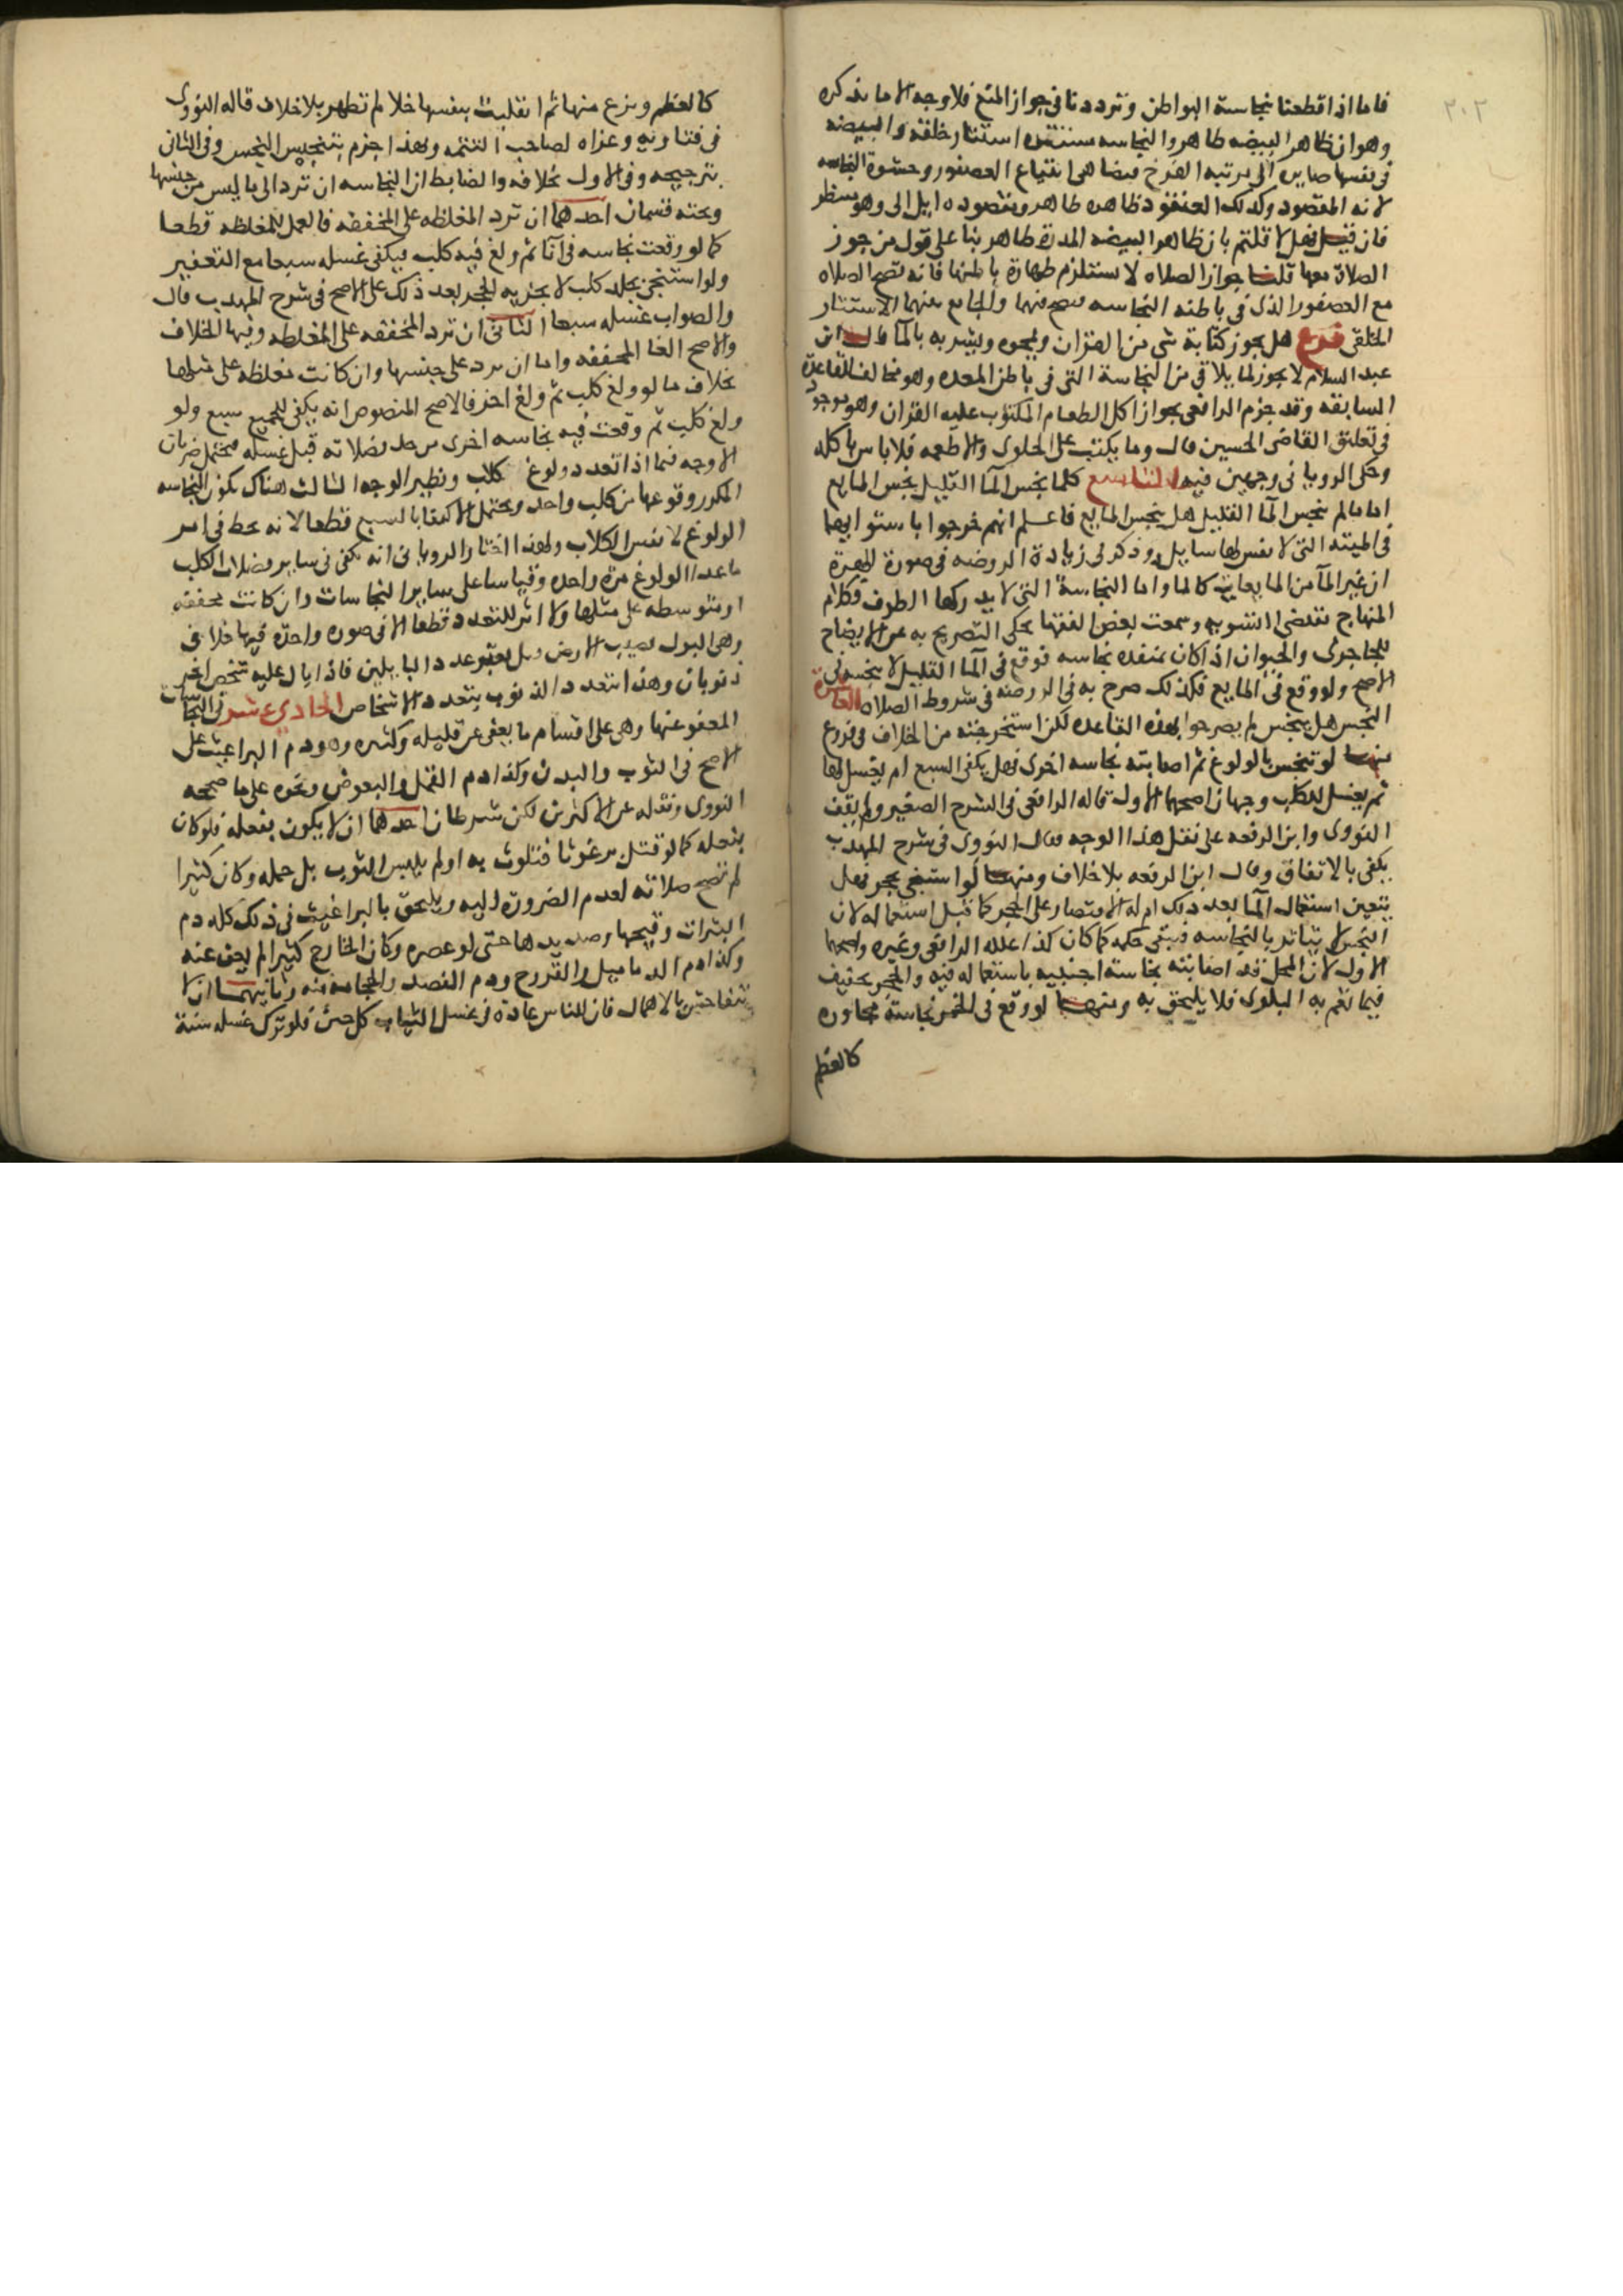 ٢٠٢
فاما اذا قطعنا بنجاسة البواطن وترددنا في جواز المنع فلا وجه الا ما يذكره
وهو ان ظاهر البيضه طاهر والنجاسه مستتره استتار خلقة والبيضه
في نفسها صايره الى مرتبه الفرخ فيضاهي ابتياع العصفور وحشوة النجاسه
لانه المقصود وكذلك العنقود ظاهره طاهر ومقصوده ايل الى وهو ينظر
فان قيل فهل لا قلتم بان ظاهر البيضه المدرة طاهر بنا على قول من جوز
الصلاة معها قلنا جواز الصلاه لا يستلزم طهارة باطنها فانه تصح الصلاه
مع العصفور الذي في باطنه النجاسه فيصح فيهما والجامع بينهما الاستتار
الخلقي فرع هل يجوز كتابة شي من القران ويمحوه ويشربه بالما قال ابن
عبد السلام لا يجوز لما يلاقي من النجاسة التي في باطن المعده وهو مخالف للقاعدة
السابقه وقد جزم الرافعي بجواز اكل الطعام المكتوب عليه القران وهو موجود
في تعليق القاضي الحسين قال وما يكتب على الحلوى والاطعمه فلا باس باكله
وحكى الروياني وجهين فيه التاسع كلما نجس الما القليل نجس المايع
اما ما لم ينجس الما القليل هل ينجس المايع فاعلم انهم خرجوا باستوايهما
في الميته التي لا نفس لها سايل وذكر في زيادة الروضه في صورة الهرة
ان غير الما من المايعات كالما واما النجاسة التي لا يدركها الطرف فكلام
المنهاج يقتضي التسويه وسمعت بعض الفقها يحكي التصريح به عن الايضاح
للجاجرمي والحيوان اذا كان بمنفذه نجاسه فوقع في الما القليل لا ينجسه في
الاصح ولو وقع في المايع فكذلك صرح به في الروضه في شروط الصلاه العاشرة
النجس هل ينجس لم يصرحوا بهذه القاعده لكن استخرجته من الخلاف في فروع
منها لو تنجس بالولوغ ثم اصابته نجاسه اخرى فهل يكفي السبع ام يغسل لها
ثم يغسل للكلب وجهان اصحهما الاول قاله الرافعي في الشرح الصغير ولم يقف
النووي وابن الرفعه على نقل هذا الوجه فقال النووي في شرح المهذب
يكفي بالاتفاق وقال ابن الرفعه بلا خلاف ومنها لو استنجى بحجر فهل
يتعين استعمال الما بعد ذلك ام له الاقتصار على الحجر كما قبل استعماله لان
النجس لا يتاثر بالنجاسه فيبقى حكمه كما كان كذا علله الرافعي وغيره واصحهما
الاول لان المحل قد اصابته نجاسة اجنبيه باستعماله فيه والحجر تخفيف
فيما تعم به البلوى فلا يلحق به ومنها لو وقع في الخمر نجاسة مجاوره
كالعظم
كالعظم ونزع منها ثم انقلبت بنفسها خلا لم تطهر بلا خلاف قاله النووي
في فتاويه وعزاه لصاحب التتمه وهذا جزم بتنجيس النجس وفي الثاني
بترجيحه وفي الاول بخلافه والضابط ان النجاسه ان ترد الى ما ليس من جنسها
وتحته قسمان احدهما ان ترد المغلظه على المخففه فالعمل للمغلظه قطعا
كما لو وقعت نجاسه في انا ثم ولغ فيه كلب فيكفي غسله سبعا مع التعفير
ولو استنجى بجلد كلب لا يجزيه الحجر بعد ذلك على الاصح في شرح المهذب قال
والصواب غسله سبعا الثاني ان ترد المخففه على المغلظه وفيها الخلاف
والاصح الغا المخففه واما ان يرد على جنسها وان كانت مغلظه على مثلها
بخلاف ما لو ولغ كلب ثم ولغ اخر فالاصح المنصوص انه يكفي للجميع سبع ولو
ولغ كلب ثم وقعت فيه نجاسه اخرى من فضلاته قبل غسله فيحتمل ضربان
الاوجه فيما اذا تعدد ولوغ كلاب ونظير الوجه الثالث هناك بكون النجاسه
المكرر وقوعها من كلب واحد ويحتمل الاكتفا بالسبع قطعا لانه حط في امر
الولوغ لا نفس الكلاب ولهذا اختار الروياني انه يكفي في ساير فضلات الكلب
ما عدا الولوغ مرة واحده وقياسا على ساير النجاسات وان كانت مخففه
او متوسطه على مثلها ولا اثر للتعدد قطعا الا في صوره واحدة فيها خلاف
وهي البول يصيب الارض هل يعتبر عدد البايلين فاذا بال عليه شخص اخر
ذنوبان وهذا تعدد الذنوب بتعدد الاشخاص الحادي عشر في النجاسات
المعفو عنها وهي على اقسام ما يعفى عن قليله وكثيره وهو دم البراغيث على
الاصح في الثوب والبدن وكذا دم القمل والبعوض ونحوه على ما صححه
النووي ونقله عن الاكثرين لكن شرطان احدهما ان لا يكون بفعله فلو كان
بفعله كما لو قتل برغوثا فتلوث به او لم يلبس الثوب بل حمله وكان كثيرا
لم تصح صلاته لعدم الضرورة اليه ويلحق بالبراغيث في ذلك كله دم
البثرات وقيحها وصديدها حتى لو عصره وكان الخارج كثيرا لم يعف عنه
وكذا دم الدماميل والقروح ودم الفصد والحجامه منه وثانيهما ان لا
يتفاحش بالاهمال فان للناس عادة في غسل الثياب كل حين فلو ترك غسله سنة